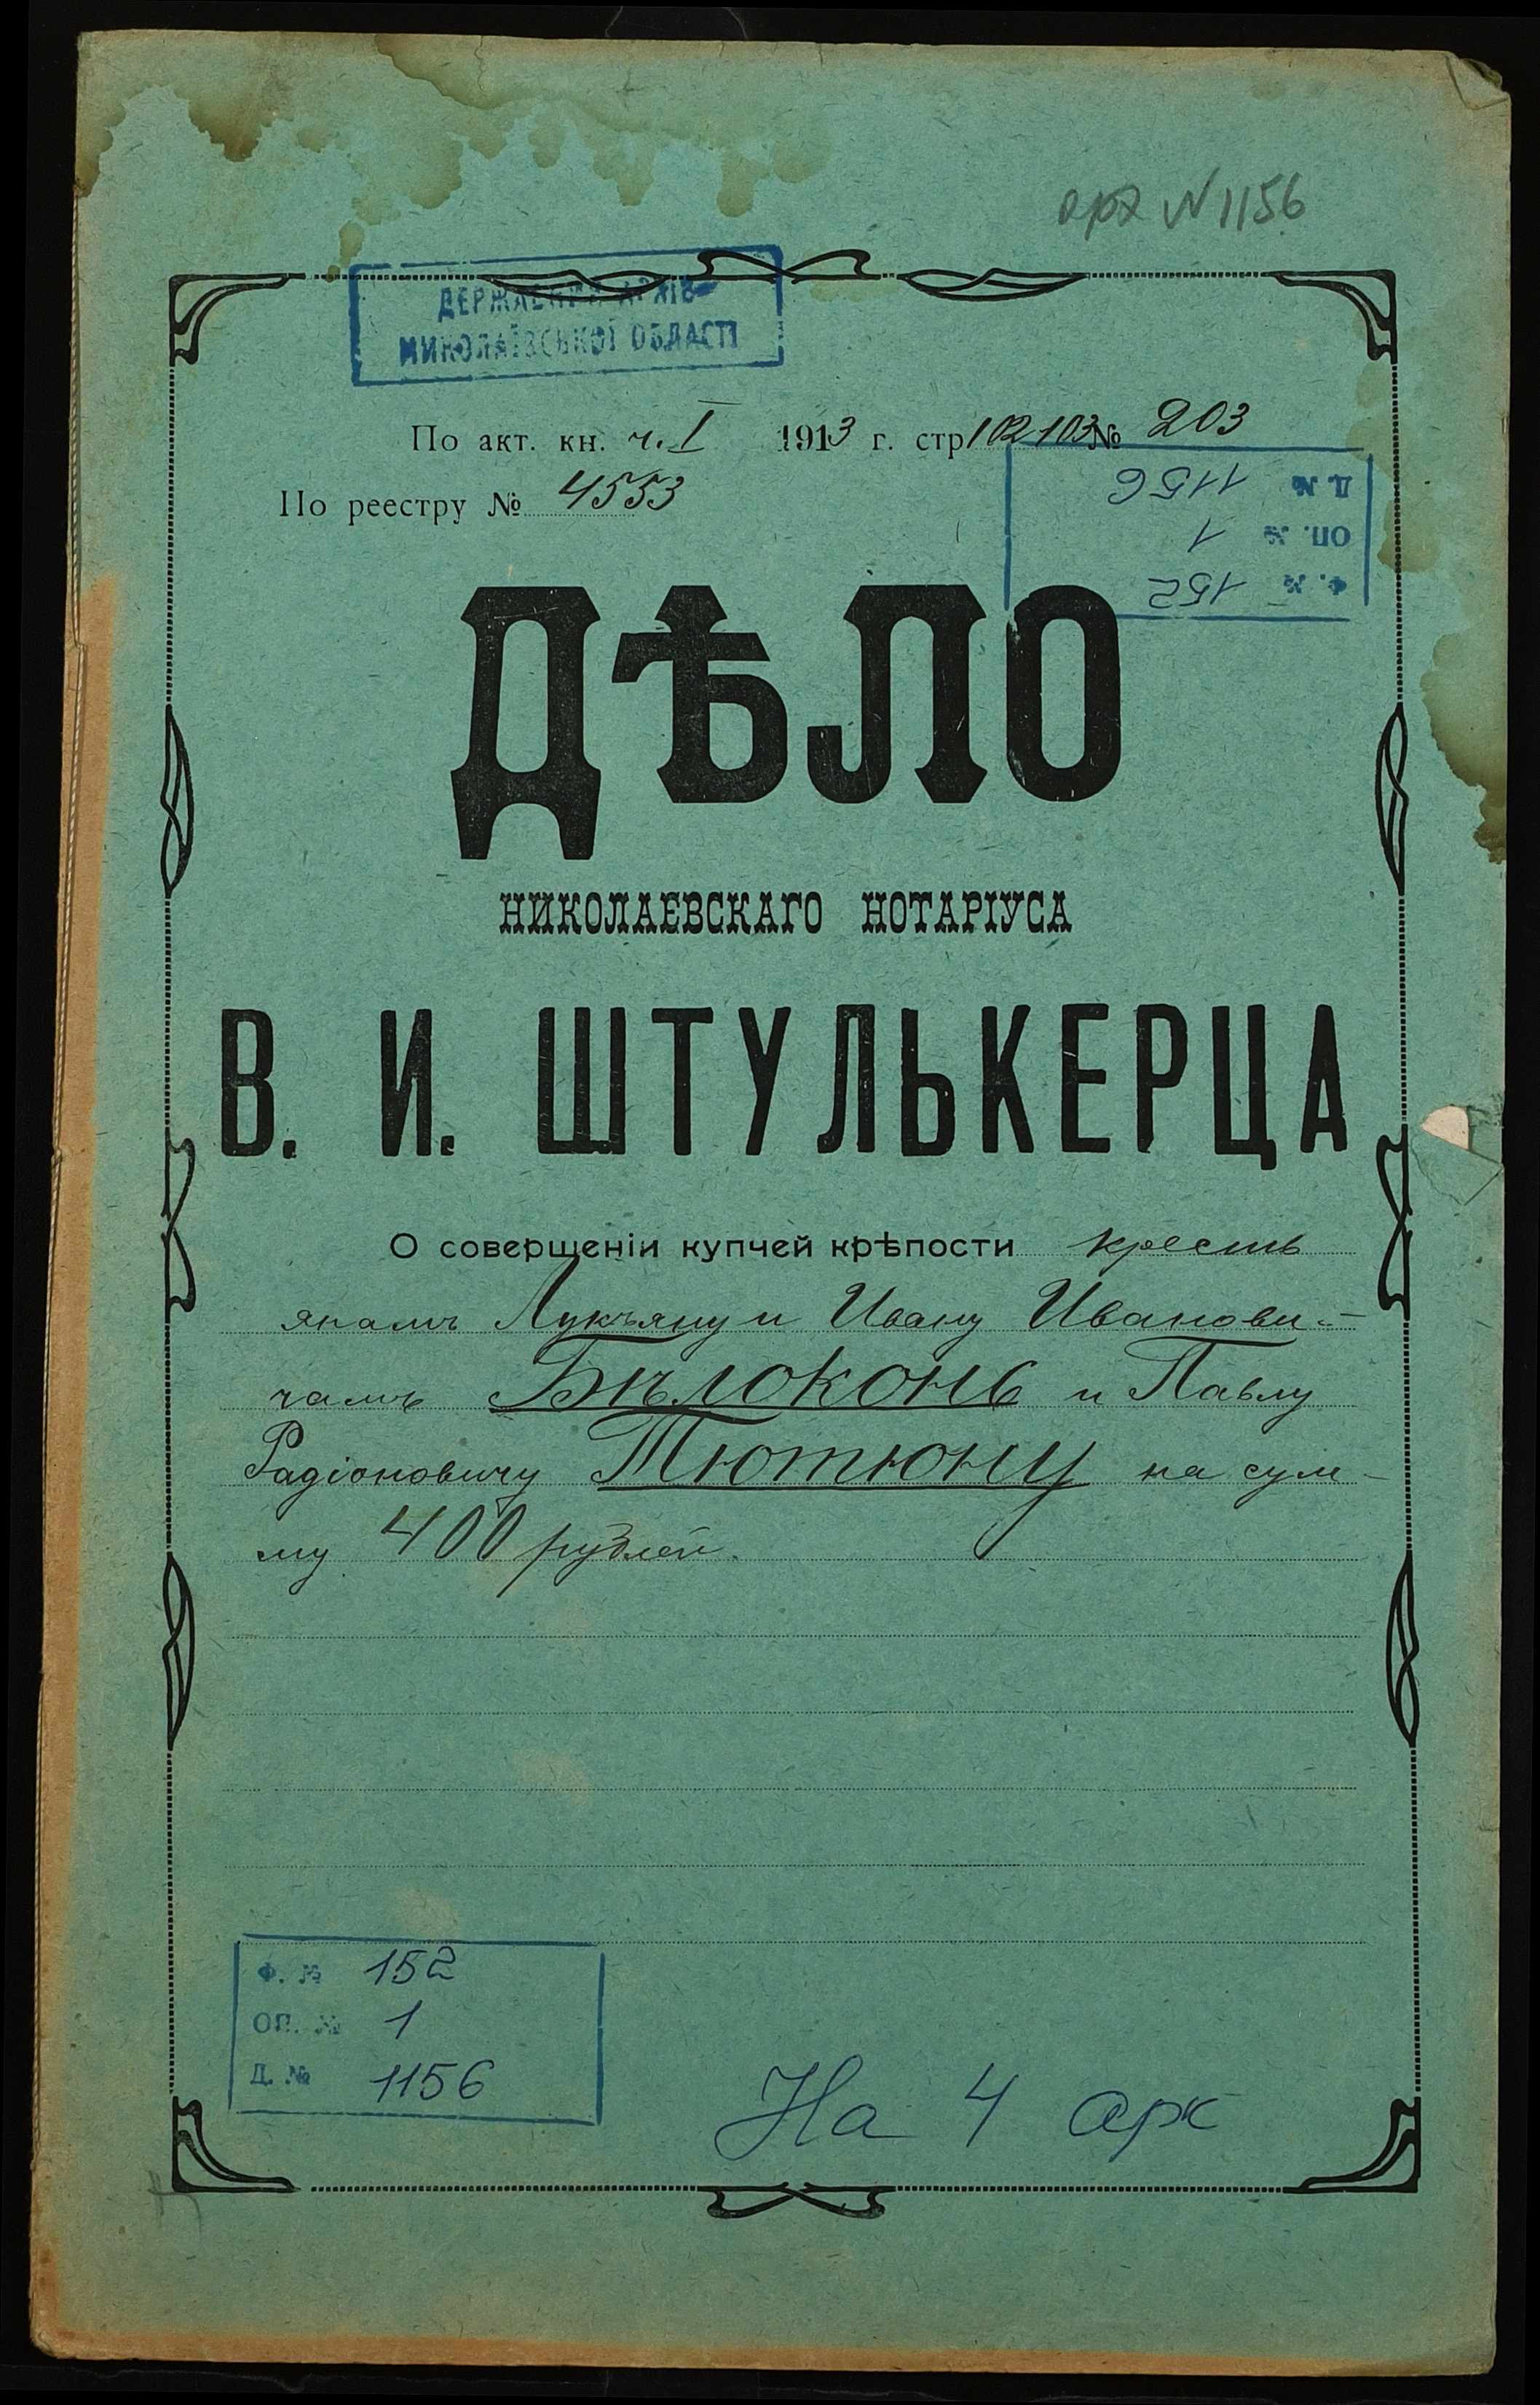 арх N 1156
ДЕРЖАВНИЙ АРХІВ
МИКОЛАЇВСЬКОЇ ОБЛАСТІ
По акт. кн. ч. I 1913 г. стр 102 103 № 203
По реестру № 4553
Д. № 1156
ОП. № 1
Ф. № 152
ДѢЛО
НИКОЛАЕВСКАГО НОТАРІУСА
В. И. ШТУЛЬКЕРЦА
О совершеніи купчей крѣпости кресть
янамъ Лукъяну и Ивану Иванови-
чамъ Бѣлоконь и Павлу
Радіоновичу Тютюну на сум-
му 400 рублей.
Ф. № 152
ОП. № 1
Д. № 1156
На 4 арк